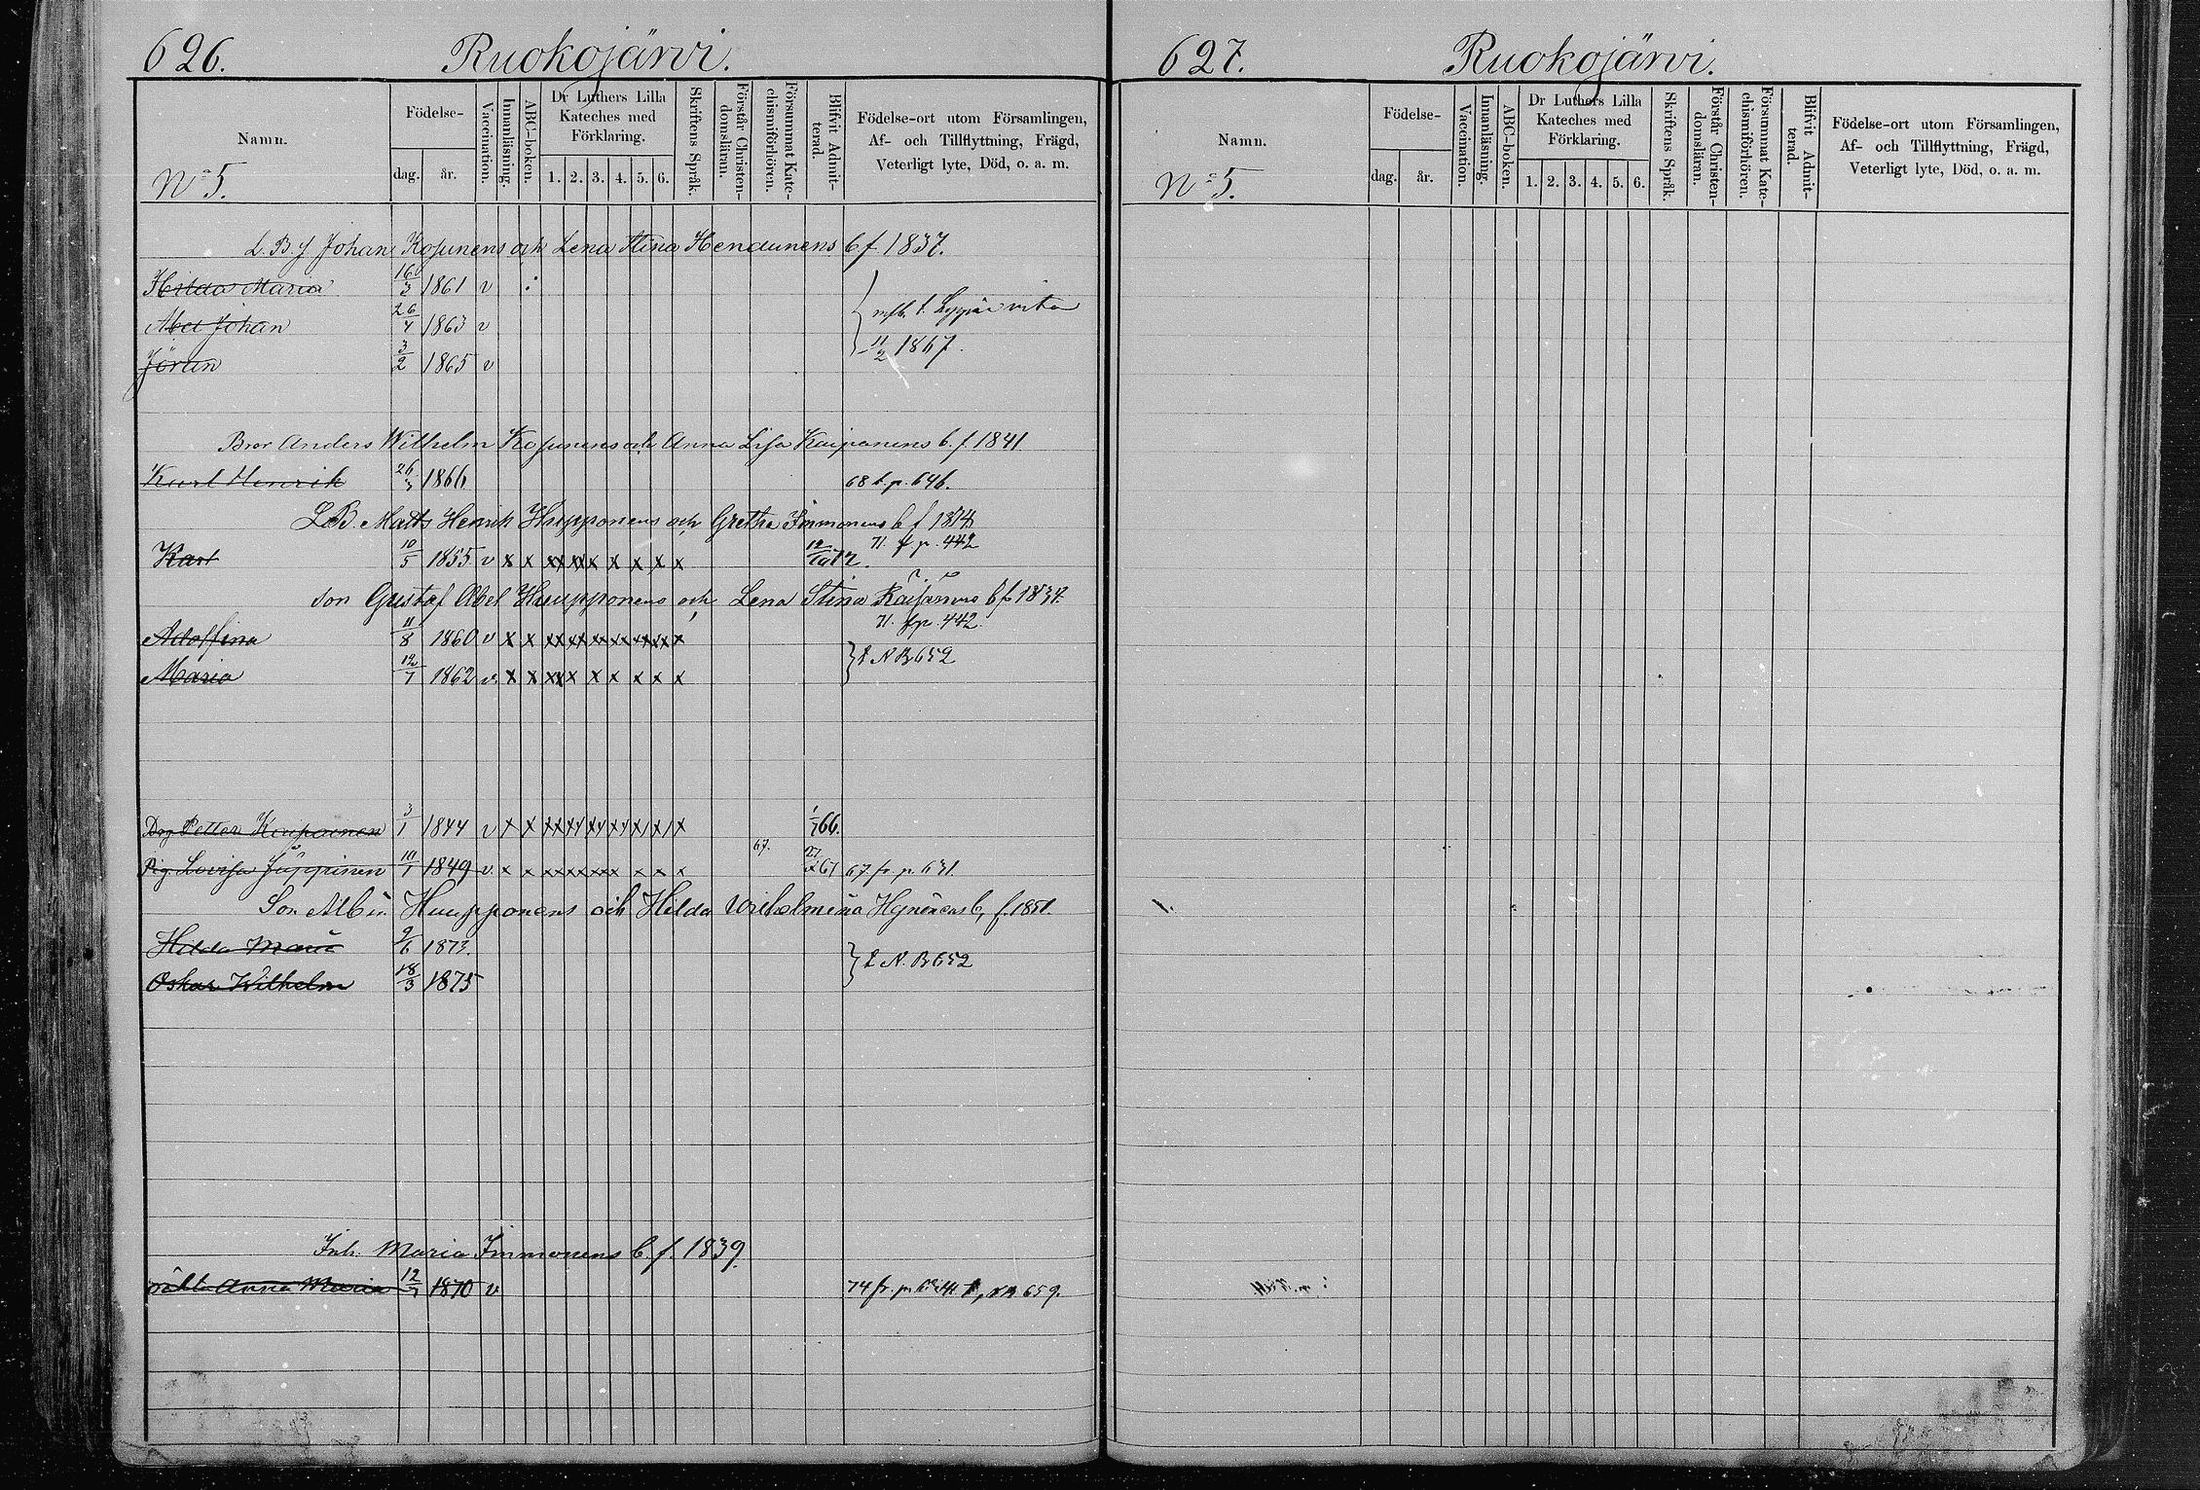 626. Ruokojärvi.
Namn.
Födelse-
dag. år.
Vaccination.
Innanläsning.
ABC-boken.
Dr Luthers Lilla Kateches med Förklaring.
1. 2. 3. 4. 5. 6.
Skriftens Språk.
Förstår Christen-domsläran.
Försummat Kate-chismiförhören.
Blifvit Admit-terad.
Födelse-ort utom Församlingen,
Af- och Tillflyttning, Frägd,
Veterligt lyte, Död, o. a. m.
No 5.
Johan Kosunens och Lena Stina b f 1837.
Hilda Maria 16/3 1861 v
Abel Johan 26/4 1863 v
Jöran 3/2 1865 v
11/2 1867.
Bror Anders Wilhelm Kosunens och Anna Lisa b. f. 1841
Karl Henrik 26/3 1866 68 t. p. 646.
L.B. Matts Henrik Huupponens och Gretha Immonens b f
Karl 10/5 1855 v x x xx xx x x x x x x 71. f p. 442
Son Gustaf Abel Huupponens och Lena Stina b f 1834.
71. f p. 442.
Adolfina 11/8 1860 v x x
Maria 12/1 1862 v x x
N B 652
Drg Petter 3/1 1844 v x x 1/7 66.
Pig. Lovisa 10/1 1849 v x x 67. 67 fr. p. 631.
Son Albin Huupponens och Hilda Wilhelmina b, f. 1851.
Hilda Maria 9/6 1873.
Oskar Wilhelm 18/3 1875
N. B 652
Inh. Maria Immonens b. f. 1839.
Anna Maria 12/7 1870 v 74 fr. p. 659.
627. Ruokojärvi.
Namn.
Födelse-
dag. år.
Vaccination.
Innanläsning.
ABC-boken.
Dr Luthers Lilla Kateches med Förklaring.
1. 2. 3. 4. 5. 6.
Skriftens Språk.
Förstår Christen-domsläran.
Försummat Kate-chismiförhören.
Blifvit Admit-terad.
Födelse-ort utom Församlingen,
Af- och Tillflyttning, Frägd,
Veterligt lyte, Död, o. a. m.
No 5.